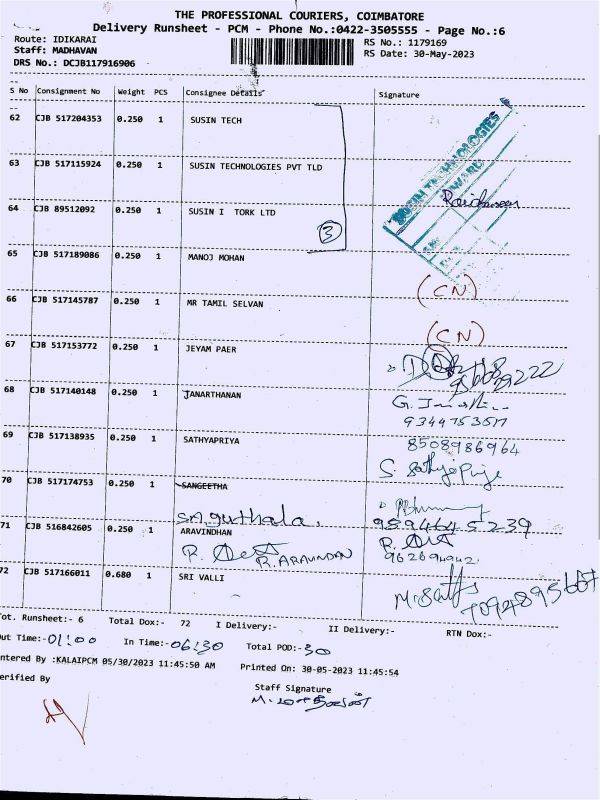 THE PROFESSIONAL COURIERS, COIMBATORE
Delivery Runsheet - PCM - Phone No.:0422-3505555 - Page No.:6
Route: IDIKARAI
RS No.: 1179169
Staff: MADHAVAN
RS Date: 30-May-2023
DRS No.: DCJB117916906
S No Consignment No Weight PCS Consignee Details Signature
62 CJB 517204353 0.250 1 SUSIN TECH
63 CJB 517115924 0.250 1 SUSIN TECHNOLOGIES PVT TLD
64 CJB 89512092 0.250 1 SUSIN I TORK LTD
3
65 CJB 517189086 0.250 1 MANOJ MOHAN (CN)
66 CJB 517145787 0.250 1 MR TAMIL SELVAN (CN)
67 CJB 517153772 0.250 1 JEYAM PAER
68 CJB 517140148 0.250 1 JANARTHANAN
69 CJB 517138935 0.250 1 SATHYAPRIYA 8508986964
70 CJB 517174753 0.250 1 SANGEETHA
9594645239
71 CJB 516842605 0.250 1 ARAVINDHAN
R. ARAVINDAN
72 CJB 517166011 0.680 1 SRI VALLI
Tot. Runsheet:- 6 Total Dox:- 72 I Delivery:- II Delivery:- RTN Dox:-
Out Time:- 01:00 In Time:- 06:30 Total POD:- 30
Entered By :KALAIPCM 05/30/2023 11:45:50 AM Printed On: 30-05-2023 11:45:54
Verified By
Staff Signature